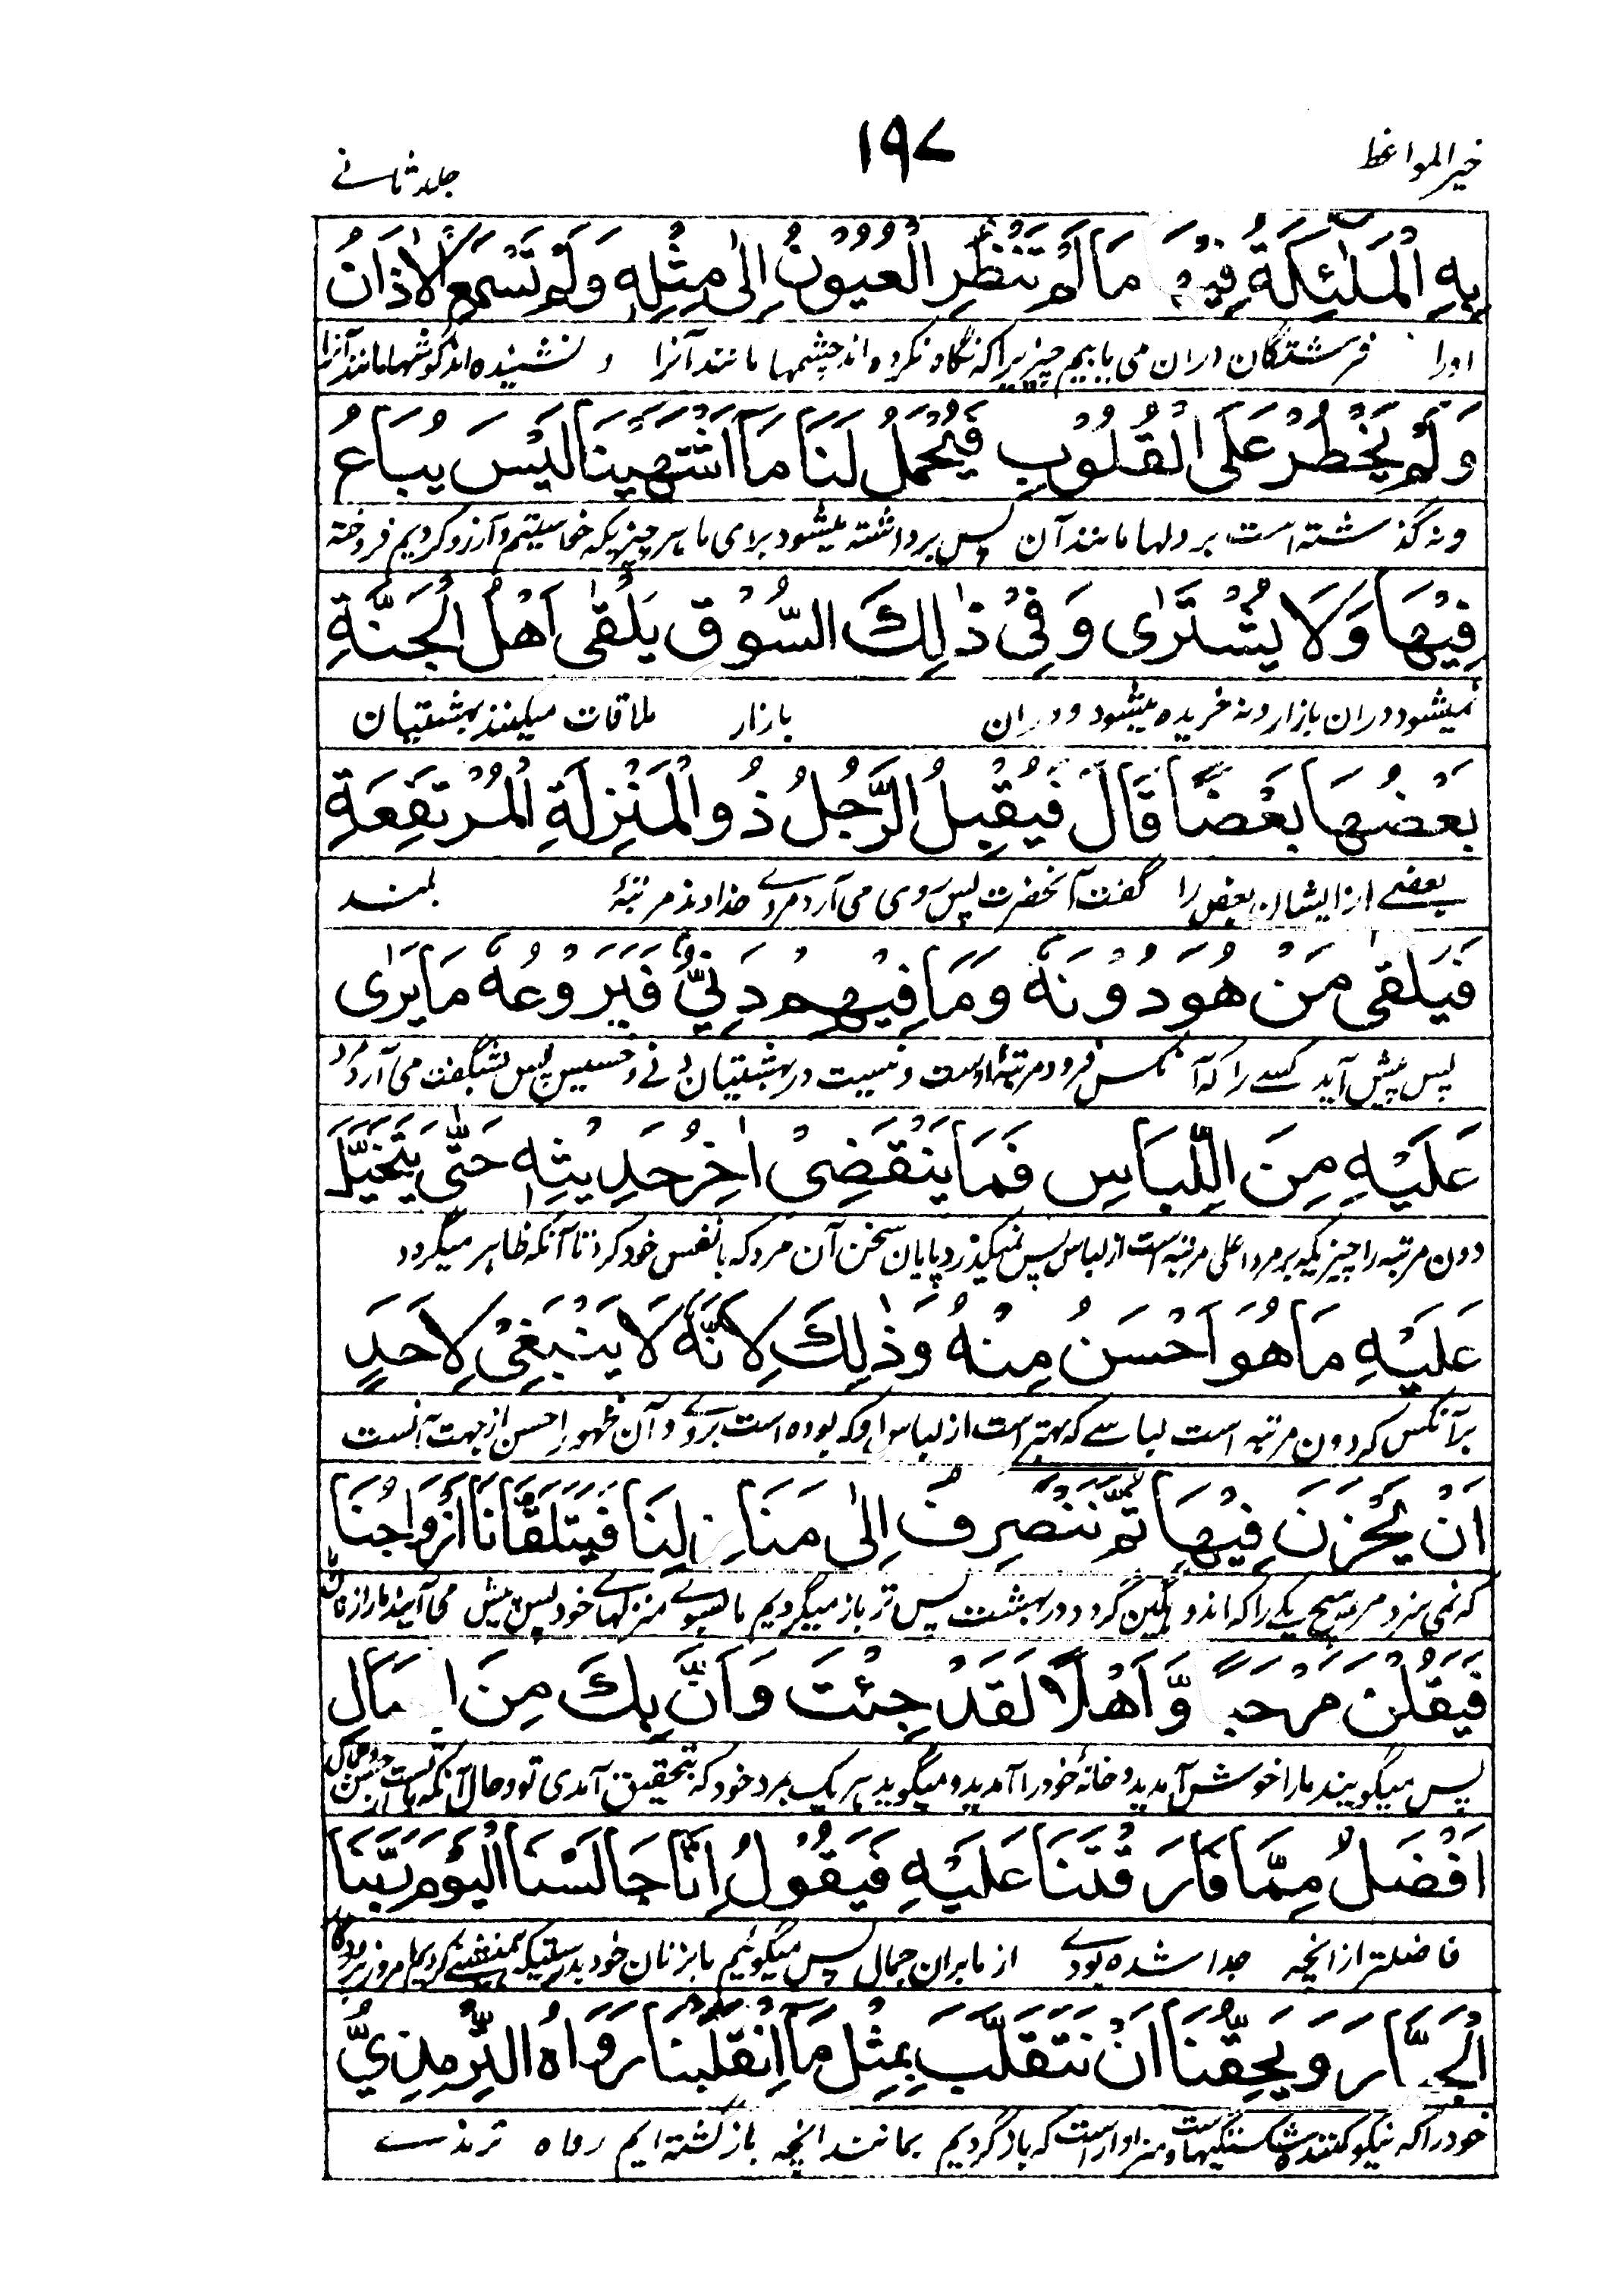 خیر المواعظ
۱۹۷
جلد ثانے
بِهِ الْمَلٰئِكَةُ فِيْهِ مَا لَمْ تَنْظُرِ الْعُيُوْنُ اِلٰى مِثْلِهٖ وَلَمْ تَسْمَعِ الْاٰذَانُ
اورا فرشتگان دران می یابیم چیزیرا که نگاه نکرده اند چشمها مانند آنرا و نشنیده اند گوشها مانند آنرا
وَلَمْ يَخْطُرْ عَلَى الْقُلُوْبِ فَيُحْمَلُ لَنَا مَا اشْتَهَيْنَا لَيْسَ يُبَاعُ
ونه گذشته است بر دلها مانند آن پس برداشته میشود برای ما هر چیزیکه خواستیم و آرزو کردیم فروخته
فِيْهَا وَلَا يُشْتَرٰى وَفِيْ ذٰلِكَ السُّوْقِ يَلْقٰى اَهْلُ الْجَنَّةِ
نمیشود دران بازار و نه خریده میشود و دران بازار ملاقات میکنند بهشتیان
بَعْضُهَا بَعْضًا قَالَ فَيُقْبِلُ الرَّجُلُ ذُو الْمَنْزِلَةِ الْمُرْتَفِعَةِ
بعضے از ایشان بعض را گفت آنحضرت پس روی می آرد مردے خداوند مرتبهٔ بلند
فَيَلْقٰى مَنْ هُوَ دُوْنَهٗ وَمَا فِيْهِمْ دَنِيٌّ فَيَرُوْعُهٗ مَا يَرٰى
پس پیش آید کسے را که آنکس فرود مرتبهٔ اوست و نیست در بهشتیان دنے و خسیس پس بشگفت می آرد مرد
عَلَيْهِ مِنَ اللِّبَاسِ فَمَا يَنْقَضِىْ اٰخِرُ حَدِيْثِهٖ حَتّٰى يَتَخَيَّلَ
دون مرتبه را چیزیکه بر مرد اعلی مرتبه است از لباس پس نمیگذرد پایان سخن آن مرد که با نفس خود کرد تا آنکه ظاهر میگردد
عَلَيْهِ مَا هُوَ اَحْسَنُ مِنْهُ وَذٰلِكَ لِاَنَّهٗ لَا يَنْبَغِىْ لِاَحَدٍ
برآنکس که دون مرتبه است لباسے که بهتر است از لباس او که بوده است بروے و آن ظهور احسن از جهت آنست
اَنْ يَّحْزَنَ فِيْهَا ثُمَّ نَنْصَرِفُ اِلٰى مَنَازِلِنَا فَيَتَلَقَّانَا اَزْوَاجُنَا
که نمی سزد مر هیچ یکے را که اندوهگین گردد در بهشت پس تر باز میگردیم ما بسوے منزلهاے خود پس پیش می آیند مارا زنان
فَيَقُلْنَ مَرْحَبًا وَّاَهْلًا لَقَدْ جِئْتَ وَاَنَّ بِكَ مِنَ الْجَمَالِ
پس میگویند مارا خوش آمدید و خانهٔ خود را آمدید و میگوید هر یک بمرد خود که بتحقیق آمدی تو و حال آنکه
اَفْضَلُ مِمَّا فَارَقْتَنَا عَلَيْهِ فَيَقُوْلُ اِنَّا جَالَسْنَا الْيَوْمَ رَبَّنَا
فاضلتر از انچه جدا شده بودے از ما بران جمال پس میگوئیم ما بزنان خود بدرستیکه همنشینے کردیم امروز
الْجَبَّارَ وَيَحِقُّنَا اَنْ نَتَقَلَّبَ بِمِثْلِ مَا انْقَلَبْنَا رَوَاهُ التِّرْمِذِيُّ
خود را که نیکو کننده شکستگیهاست و سزاوار است که باز گردیم بمانند انچه باز گشته ایم رواه ترمذے